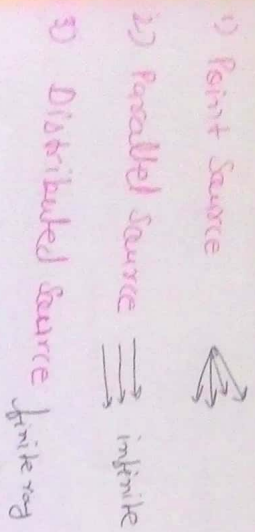 1) Point Source
2) Parallel Source infinite
3) Distributed Source finite ray